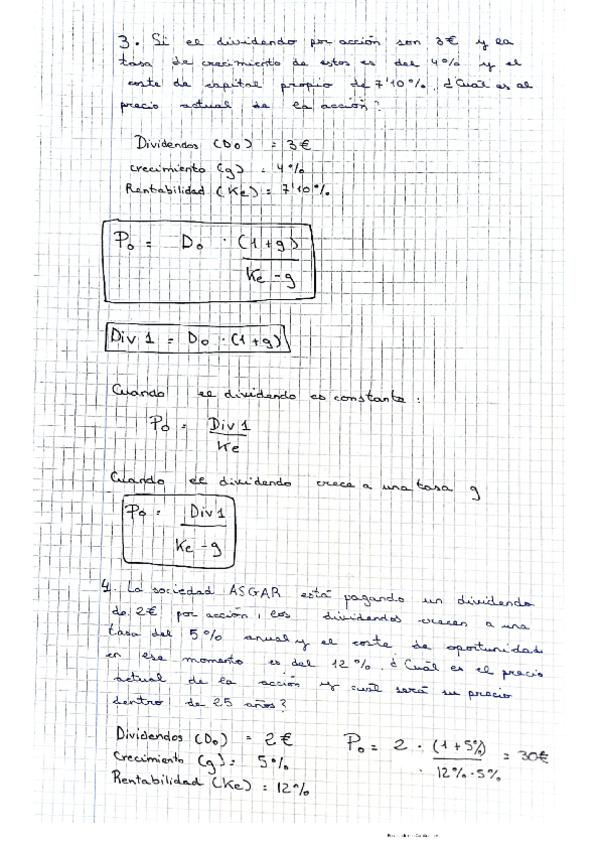 3. Si el dividendo por acción son 3€ y la
tasa de crecimiento de estos es del 4% y el
coste de capital propio de 7'10%. ¿Cuál es al
precio actual de la acción?
Dividendos (D0) = 3€
crecimiento (g) = 4%
Rentabilidad (Ke) = 7'10%
P0 = D0 · (1+g)
Ke - g
Div 1 = D0 · (1+g)
Cuando el dividendo es constante:
P0 = Div 1
Ke
Cuando el dividendo crece a una tasa g
P0 = Div 1
Ke - g
4. La sociedad ASGAR está pagando un dividendo
de 2€ por acción, los dividendos crecen a una
tasa del 5% anual y el coste de oportunidad
en ese momento es del 12%. ¿Cuál es el precio
actual de la acción y cuál será su precio
dentro de 25 años?
Dividendos (D0) = 2€
Crecimiento (g) = 5%
Rentabilidad (Ke) = 12%
P0 = 2 · (1+5%) = 30€
12% - 5%